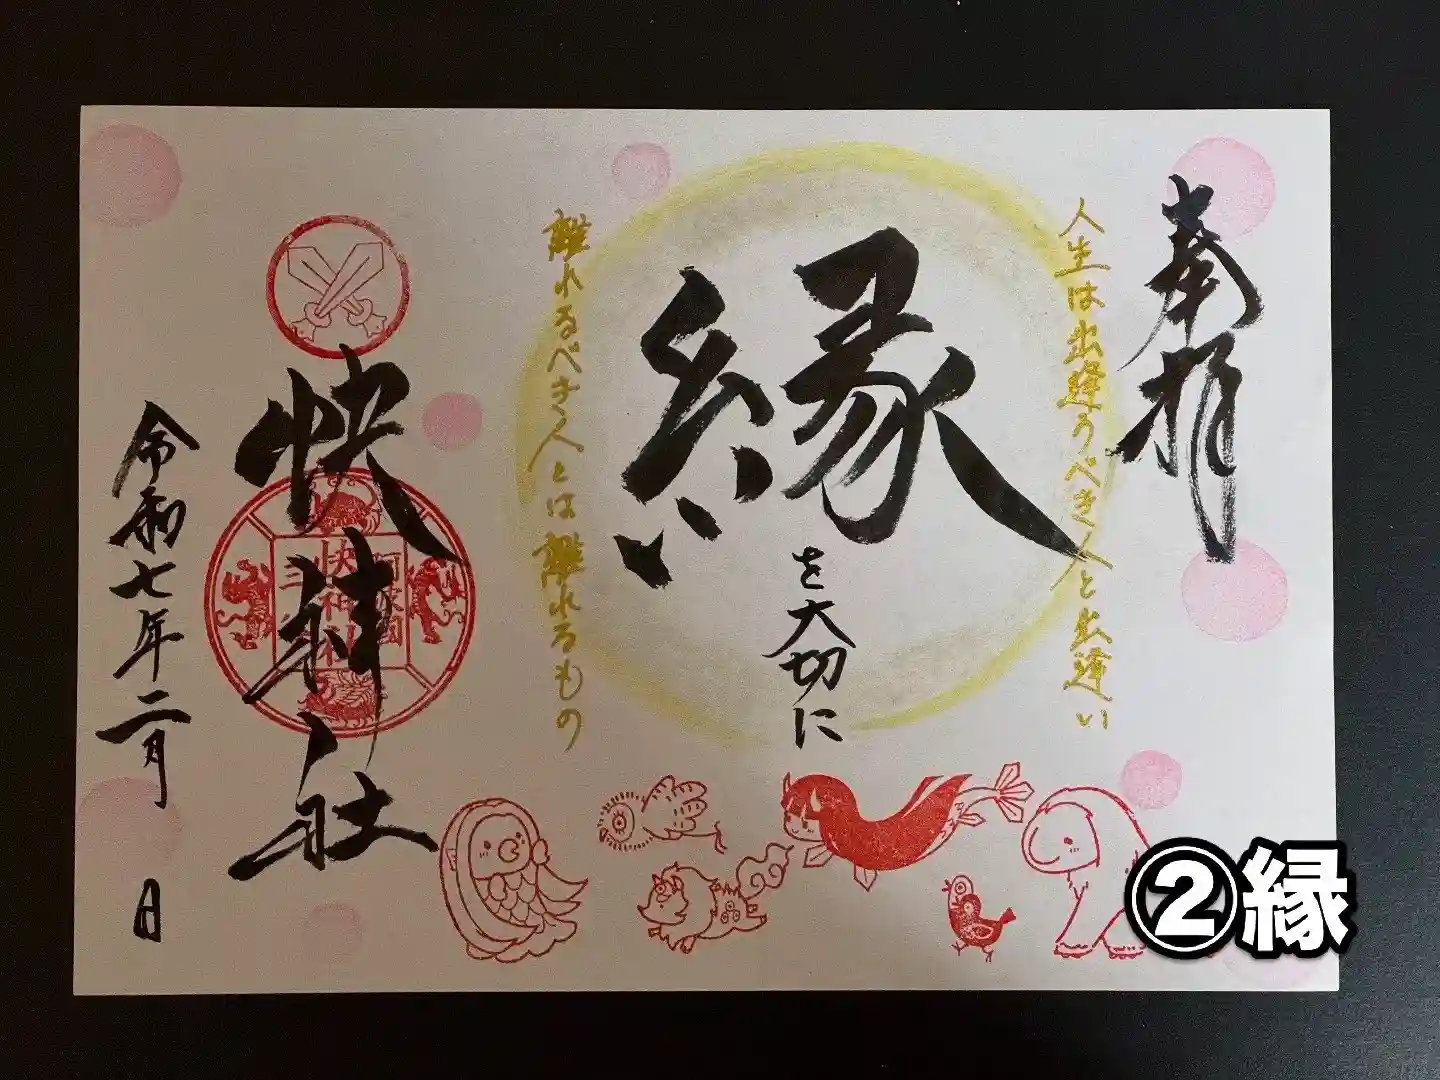 奉拝
人生は出逢うべき人と出逢い
縁
を大切に
離れるべき人とは離れるもの
快神社
令和七年二月 日
②縁